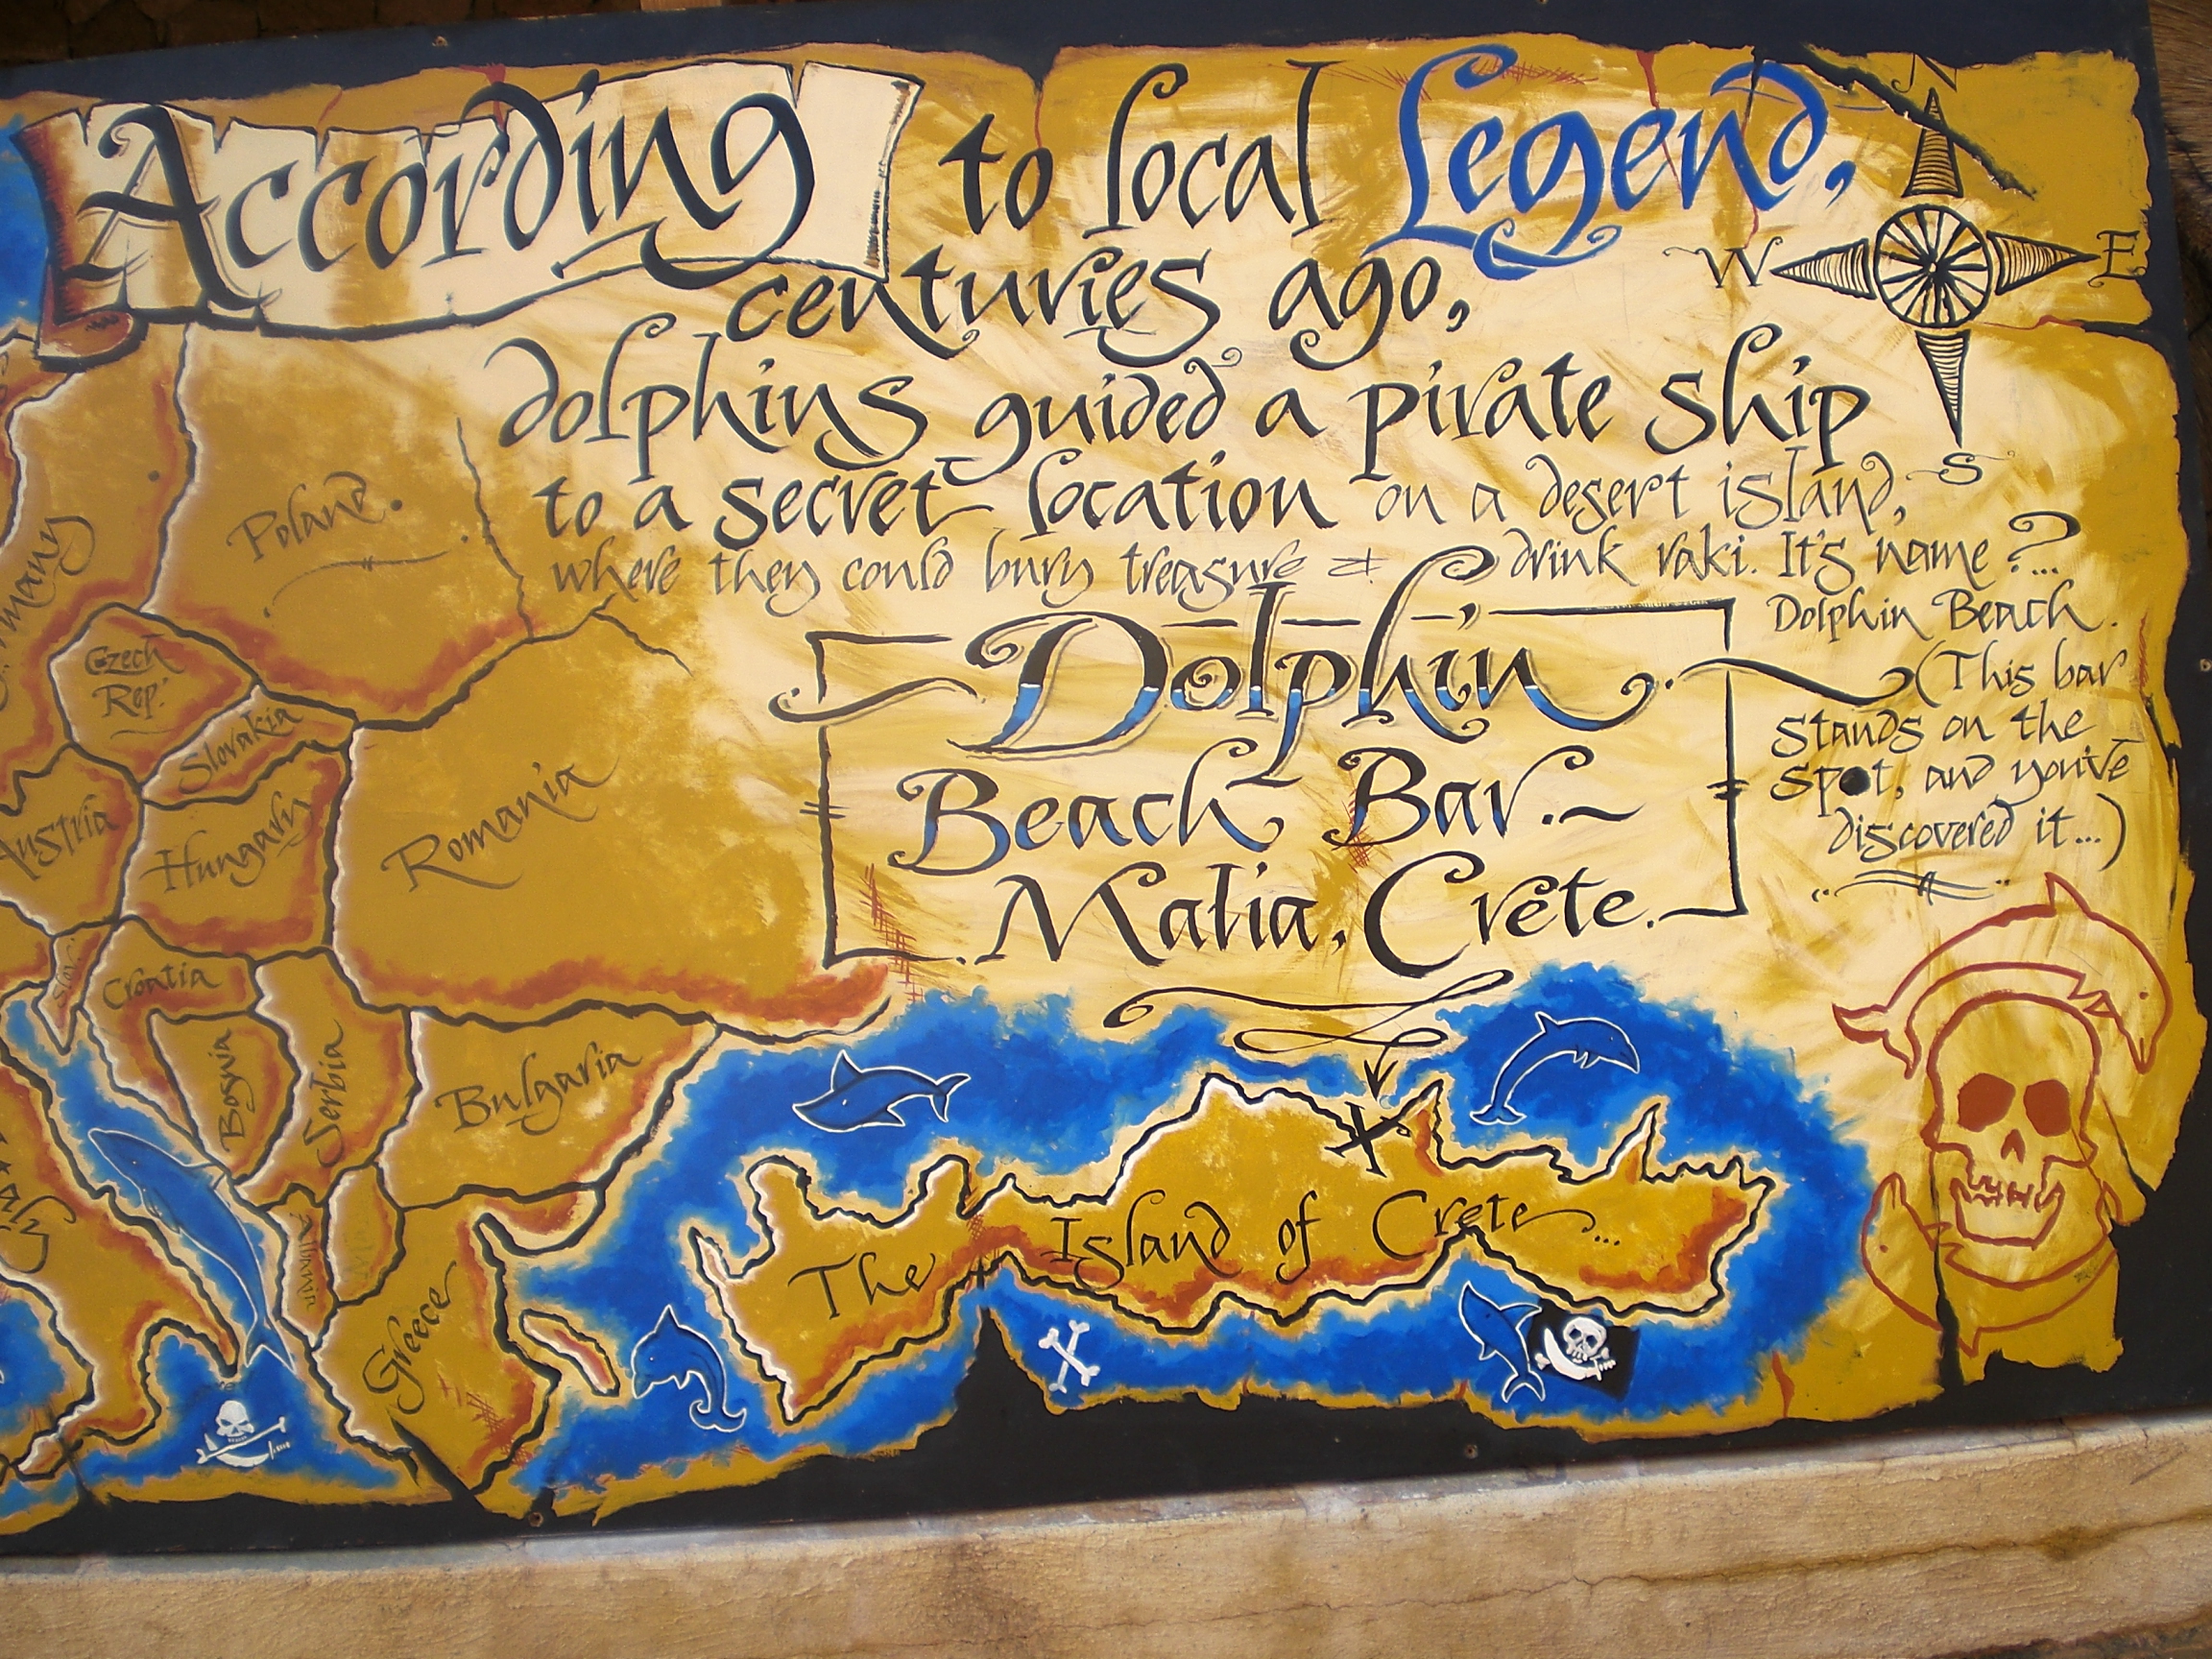 According to local Legend,
centuries ago,
dolphins guided a pirate ship
to a secret location on a desert island,
where they could bury treasure & drink raki. It's name?...
Dolphin Beach.
(This bar
stands on the
spot, and you've
discovered it...)
Dolphin
Beach Bar.~
Malia, Crete.
N
W
E
S
Poland.
Czech
Rep.
Slovakia
Austria
Hungary
Romania
Slov.
Croatia
Bosnia
Serbia
Bulgaria
Greece
The Island of Crete...
X